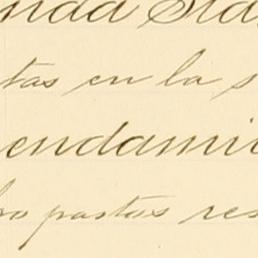 nda Sta
tas en la s
endami
ro pastos res